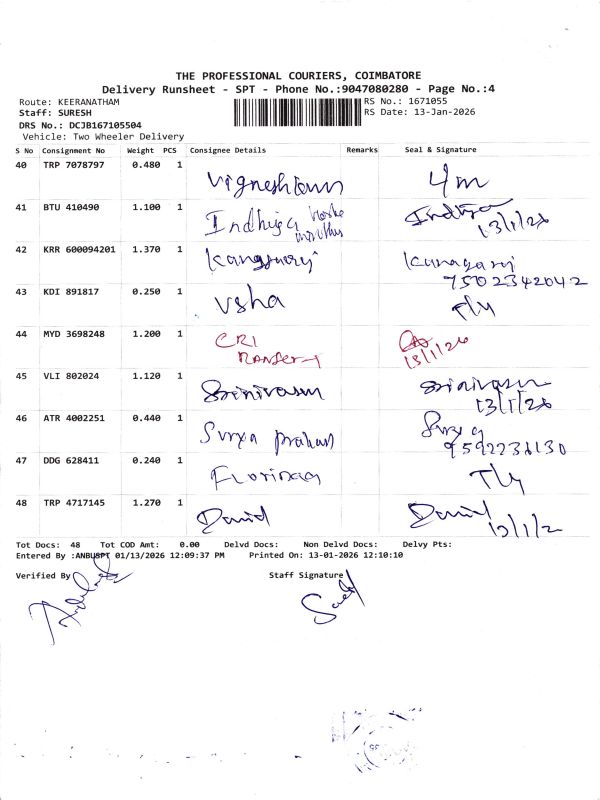 THE PROFESSIONAL COURIERS, COIMBATORE
Delivery Runsheet - SPT - Phone No.:9047080280 - Page No.:4
Route: KEERANATHAM
RS No.: 1671055
Staff: SURESH
RS Date: 13-Jan-2026
DRS No.: DCJB167105504
Vehicle: Two Wheeler Delivery
S No Consignment No Weight PCS Consignee Details Remarks Seal & Signature
40 TRP 7078797 0.480 1
41 BTU 410490 1.100 1 Indhuja Indhuja
13/1/26
42 KRR 600094201 1.370 1 Kangaraj Kanagaraj
7502342042
43 KDI 891817 0.250 1 Usha Tly
44 MYD 3698248 1.200 1 CRI
13/1/26
45 VLI 802024 1.120 1 Srinivasan Srinivasan
13/1/26
46 ATR 4002251 0.440 1 Surya prakash Surya
9592236130
47 DDG 628411 0.240 1 Tly
48 TRP 4717145 1.270 1 David David
Tot Docs: 48 Tot COD Amt: 0.00 Delvd Docs: Non Delvd Docs: Delvy Pts:
Entered By :ANBUSPT 01/13/2026 12:09:37 PM Printed On: 13-01-2026 12:10:10
Verified By Staff Signature